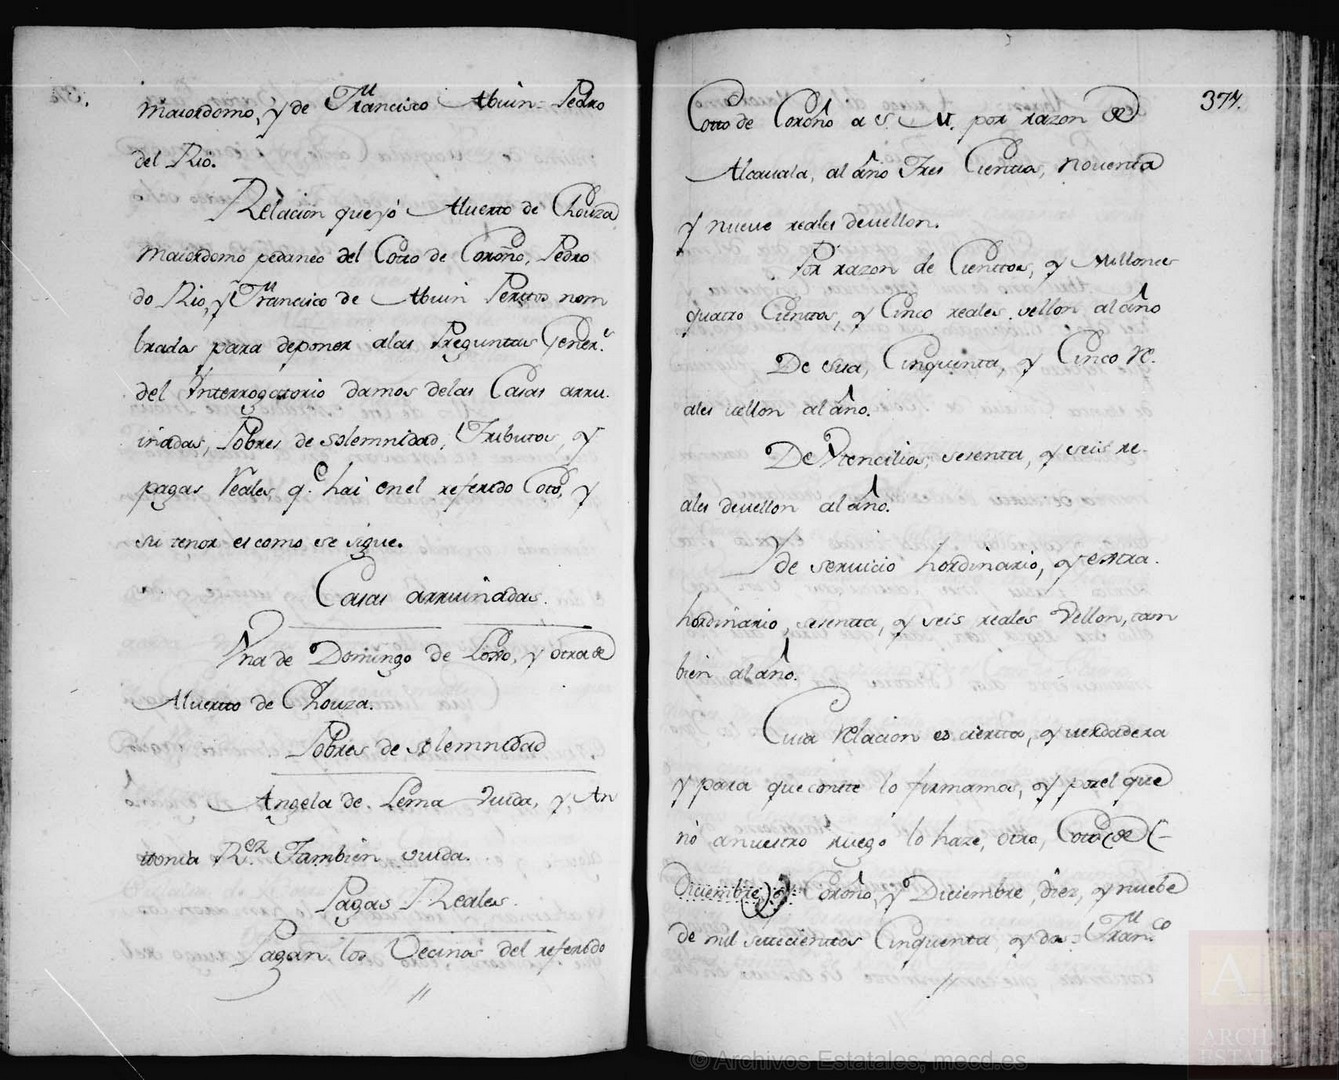 Maiordomo, y de Francisco Abuin= Pedro
del Rio.
Relacion que yó Alverto de Chouza
Maiordomo pedaneo del Cotto de Coroño, Pedro
do Rio, y Francisco de Abuin Peritos nom
brados para deponer alas Preguntas Gener.s
del Ynterrogatorio damos delas Casas arru-
inadas, Pobres de solemnidad, Tributos, y
pagas Reales q.e hai enel referido Coto, y
su tenor es como se sigue.
Casas arruinadas.
Vna de Domingo de Lorio, y otra de
Alvertto de Chouza.
Pobres de solemnidad
Angela de Lema viuda, y An
ttonia R.ez Tambien viuda.
Pagas Reales.
Pagan los Vecinos del referido
377.
Cotto de Coroño a S. M. por razon de
Alcauala, al año Tres Cientos, noventa
y nueve reales devellon.
Por razon de Cienttos, y Millones
quatro Cienttos, y Cinco reales vellon al año
De sua, Cinquenta, y Cinco Re-
ales vellon al año.
De Vtencilios, sesenta, y seis re-
ales devellon al año.
Y de servicio hordinario, y extra-
hordinario, sesentta, y seis reales Vellon, tam
bien al año.
Cuia Relacion es ciertta, y verdadera
y para que conste lo firmamos, y por el que
nó anuestro ruegó lo haze, otro, Cotto de
Coroño, y Diciembre diez, y nuebe
de mil settecienttos Cinquenta, y dos= Fran.co
© Archivos Estatales, mecd.es
ARCH
ESTAT